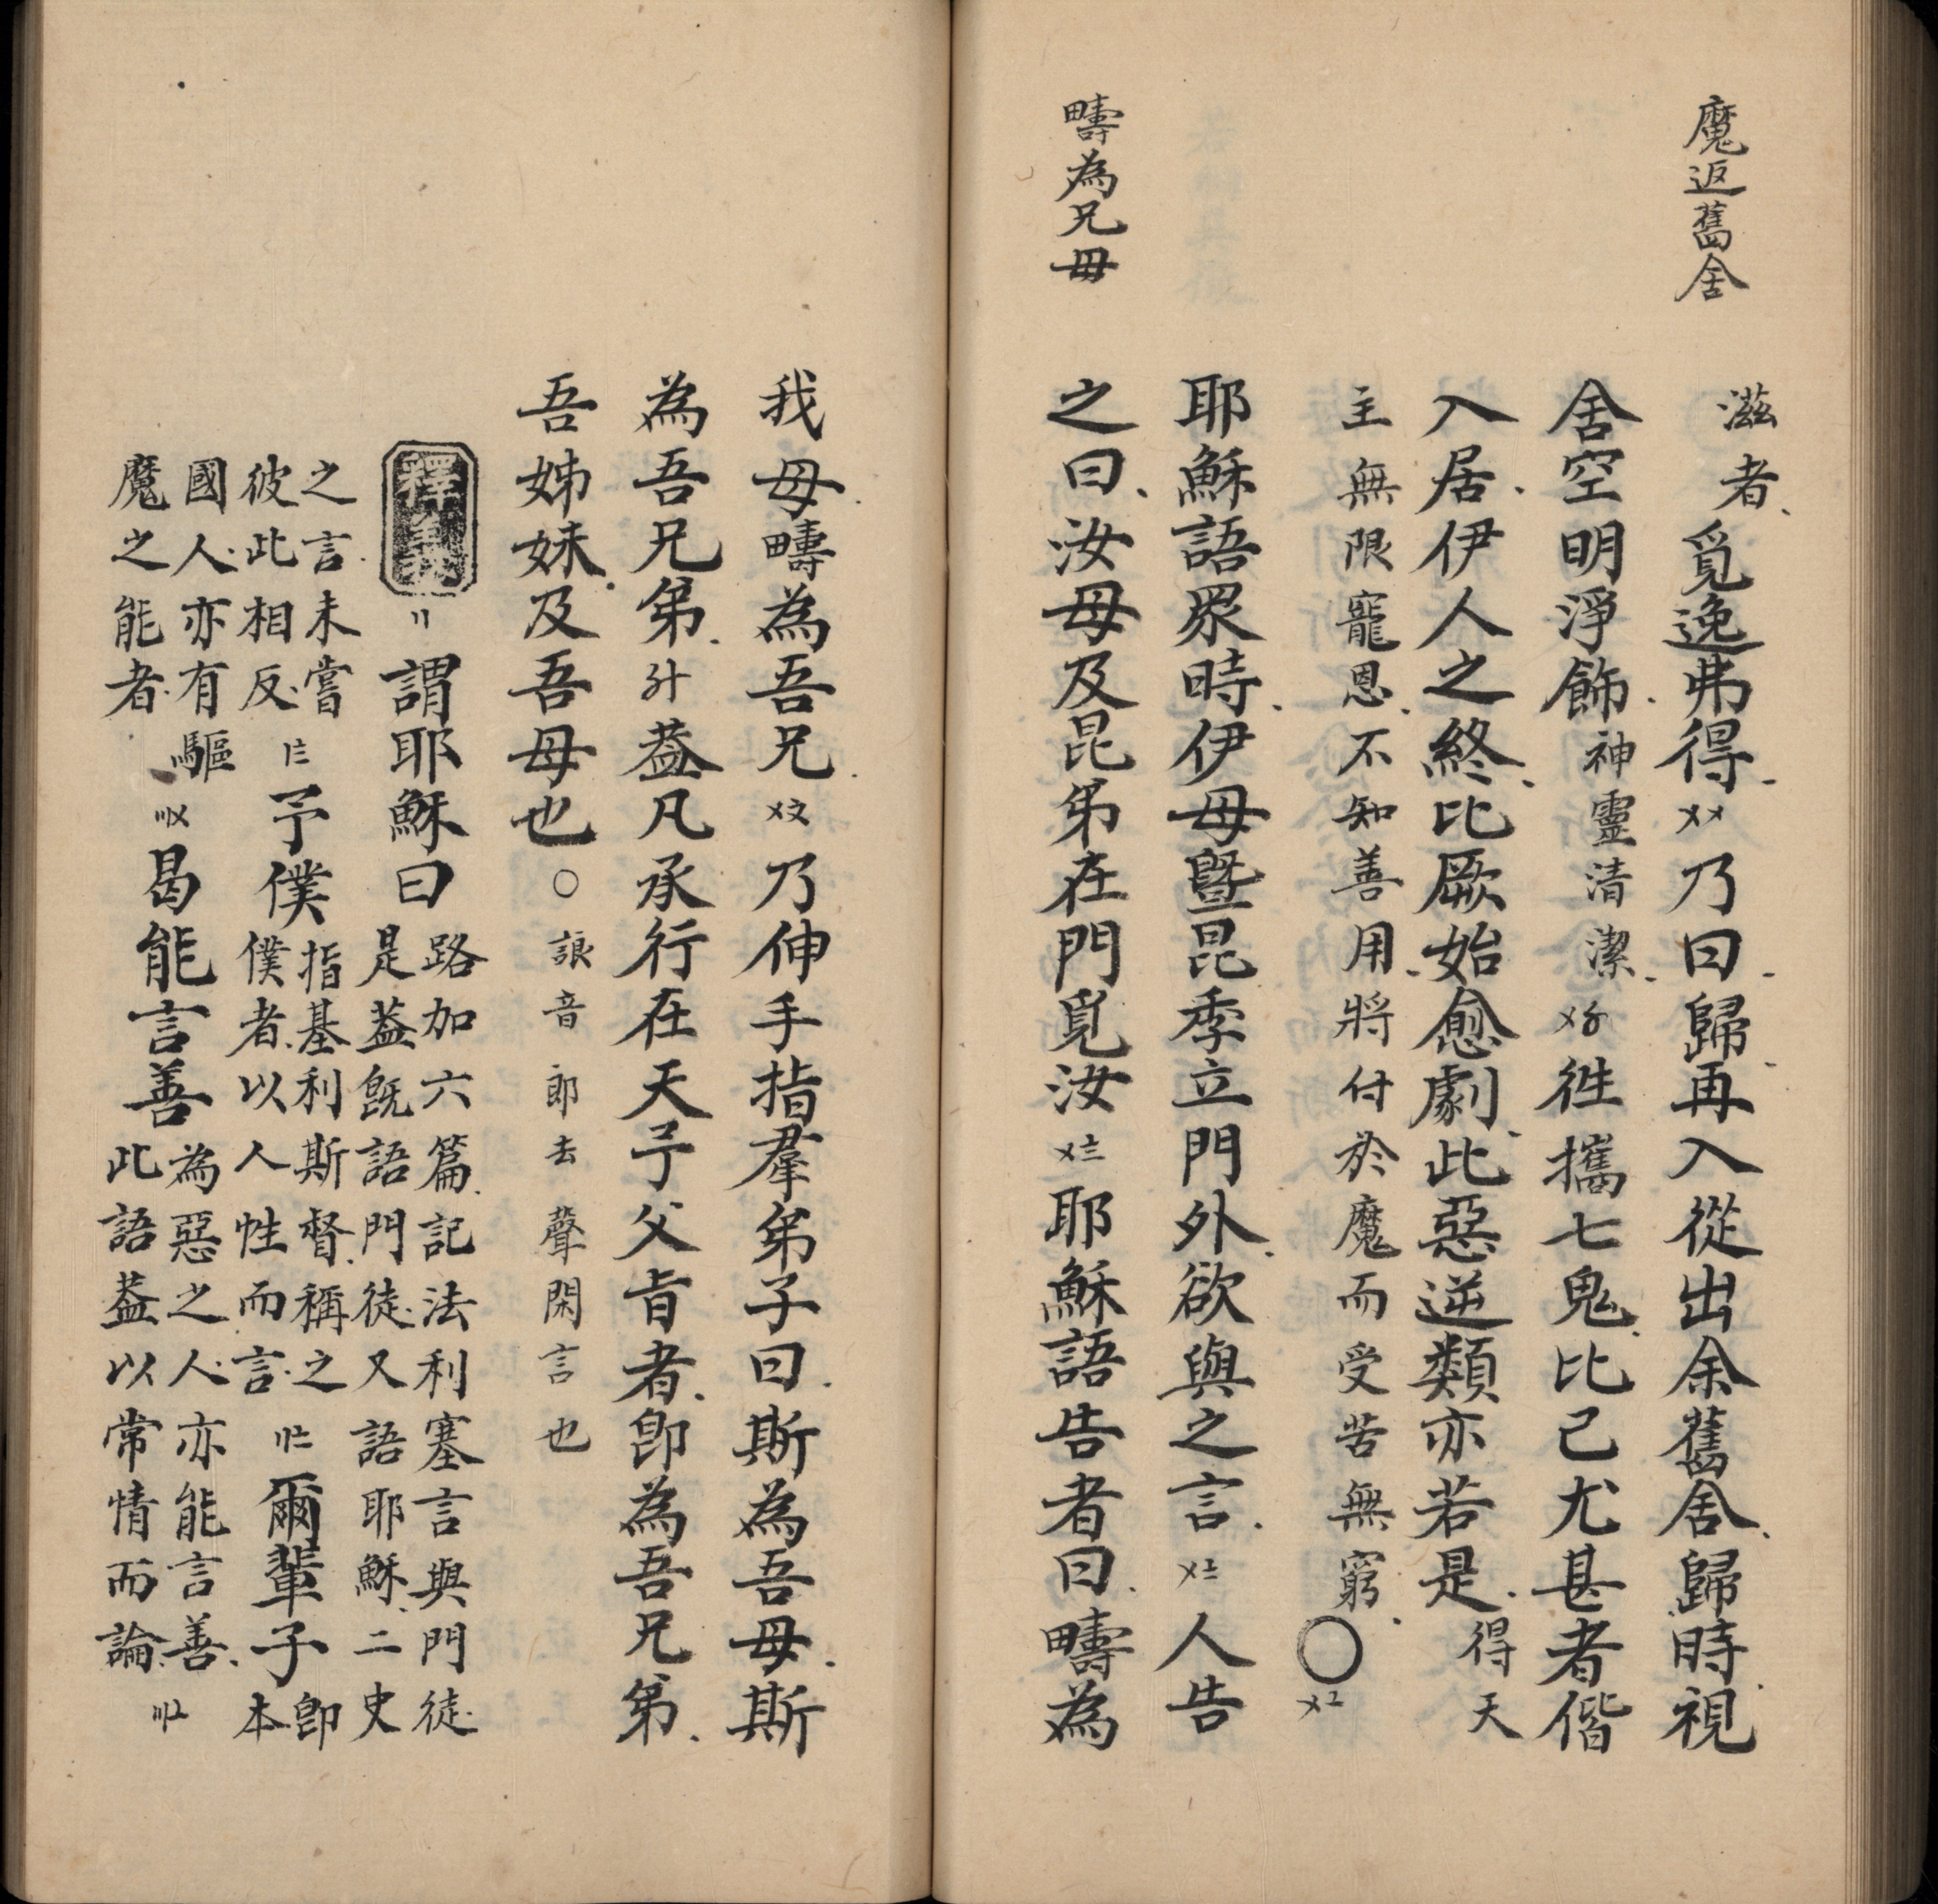 魔返舊舍
疇為兄母
滋者覓逸弗得〤〤乃曰歸再入從出余舊舍歸時視
舍空明淨飾神靈清潔徃攜七鬼比己尤甚者偕
入居伊人之終比厥始愈劇此惡逆類亦若是得天
主無限寵恩不知善用將付於魔而受苦無窮〇
耶穌語眾時伊母曁昆季立門外欲與之言〤〧人告
之曰汝母及昆弟在門覓汝〤〨耶穌語告者曰疇為
我母疇為吾兄乃伸手指羣弟子曰斯為吾母斯
為吾兄弟蓋凡承行在天予父旨者即為吾兄弟
吾姊妹及吾母也〇誏音郎去聲閑言也
釋義〢謂耶穌曰路加六篇記法利塞言與門徒
是蓋旣語門徒又語耶穌二史
之言未嘗
彼此相反予僕指基利斯督稱之
僕者以人性而言爾輩子即
本
國人亦有驅
魔之能者曷能言善為惡之人亦能言善
此語蓋以常情而論